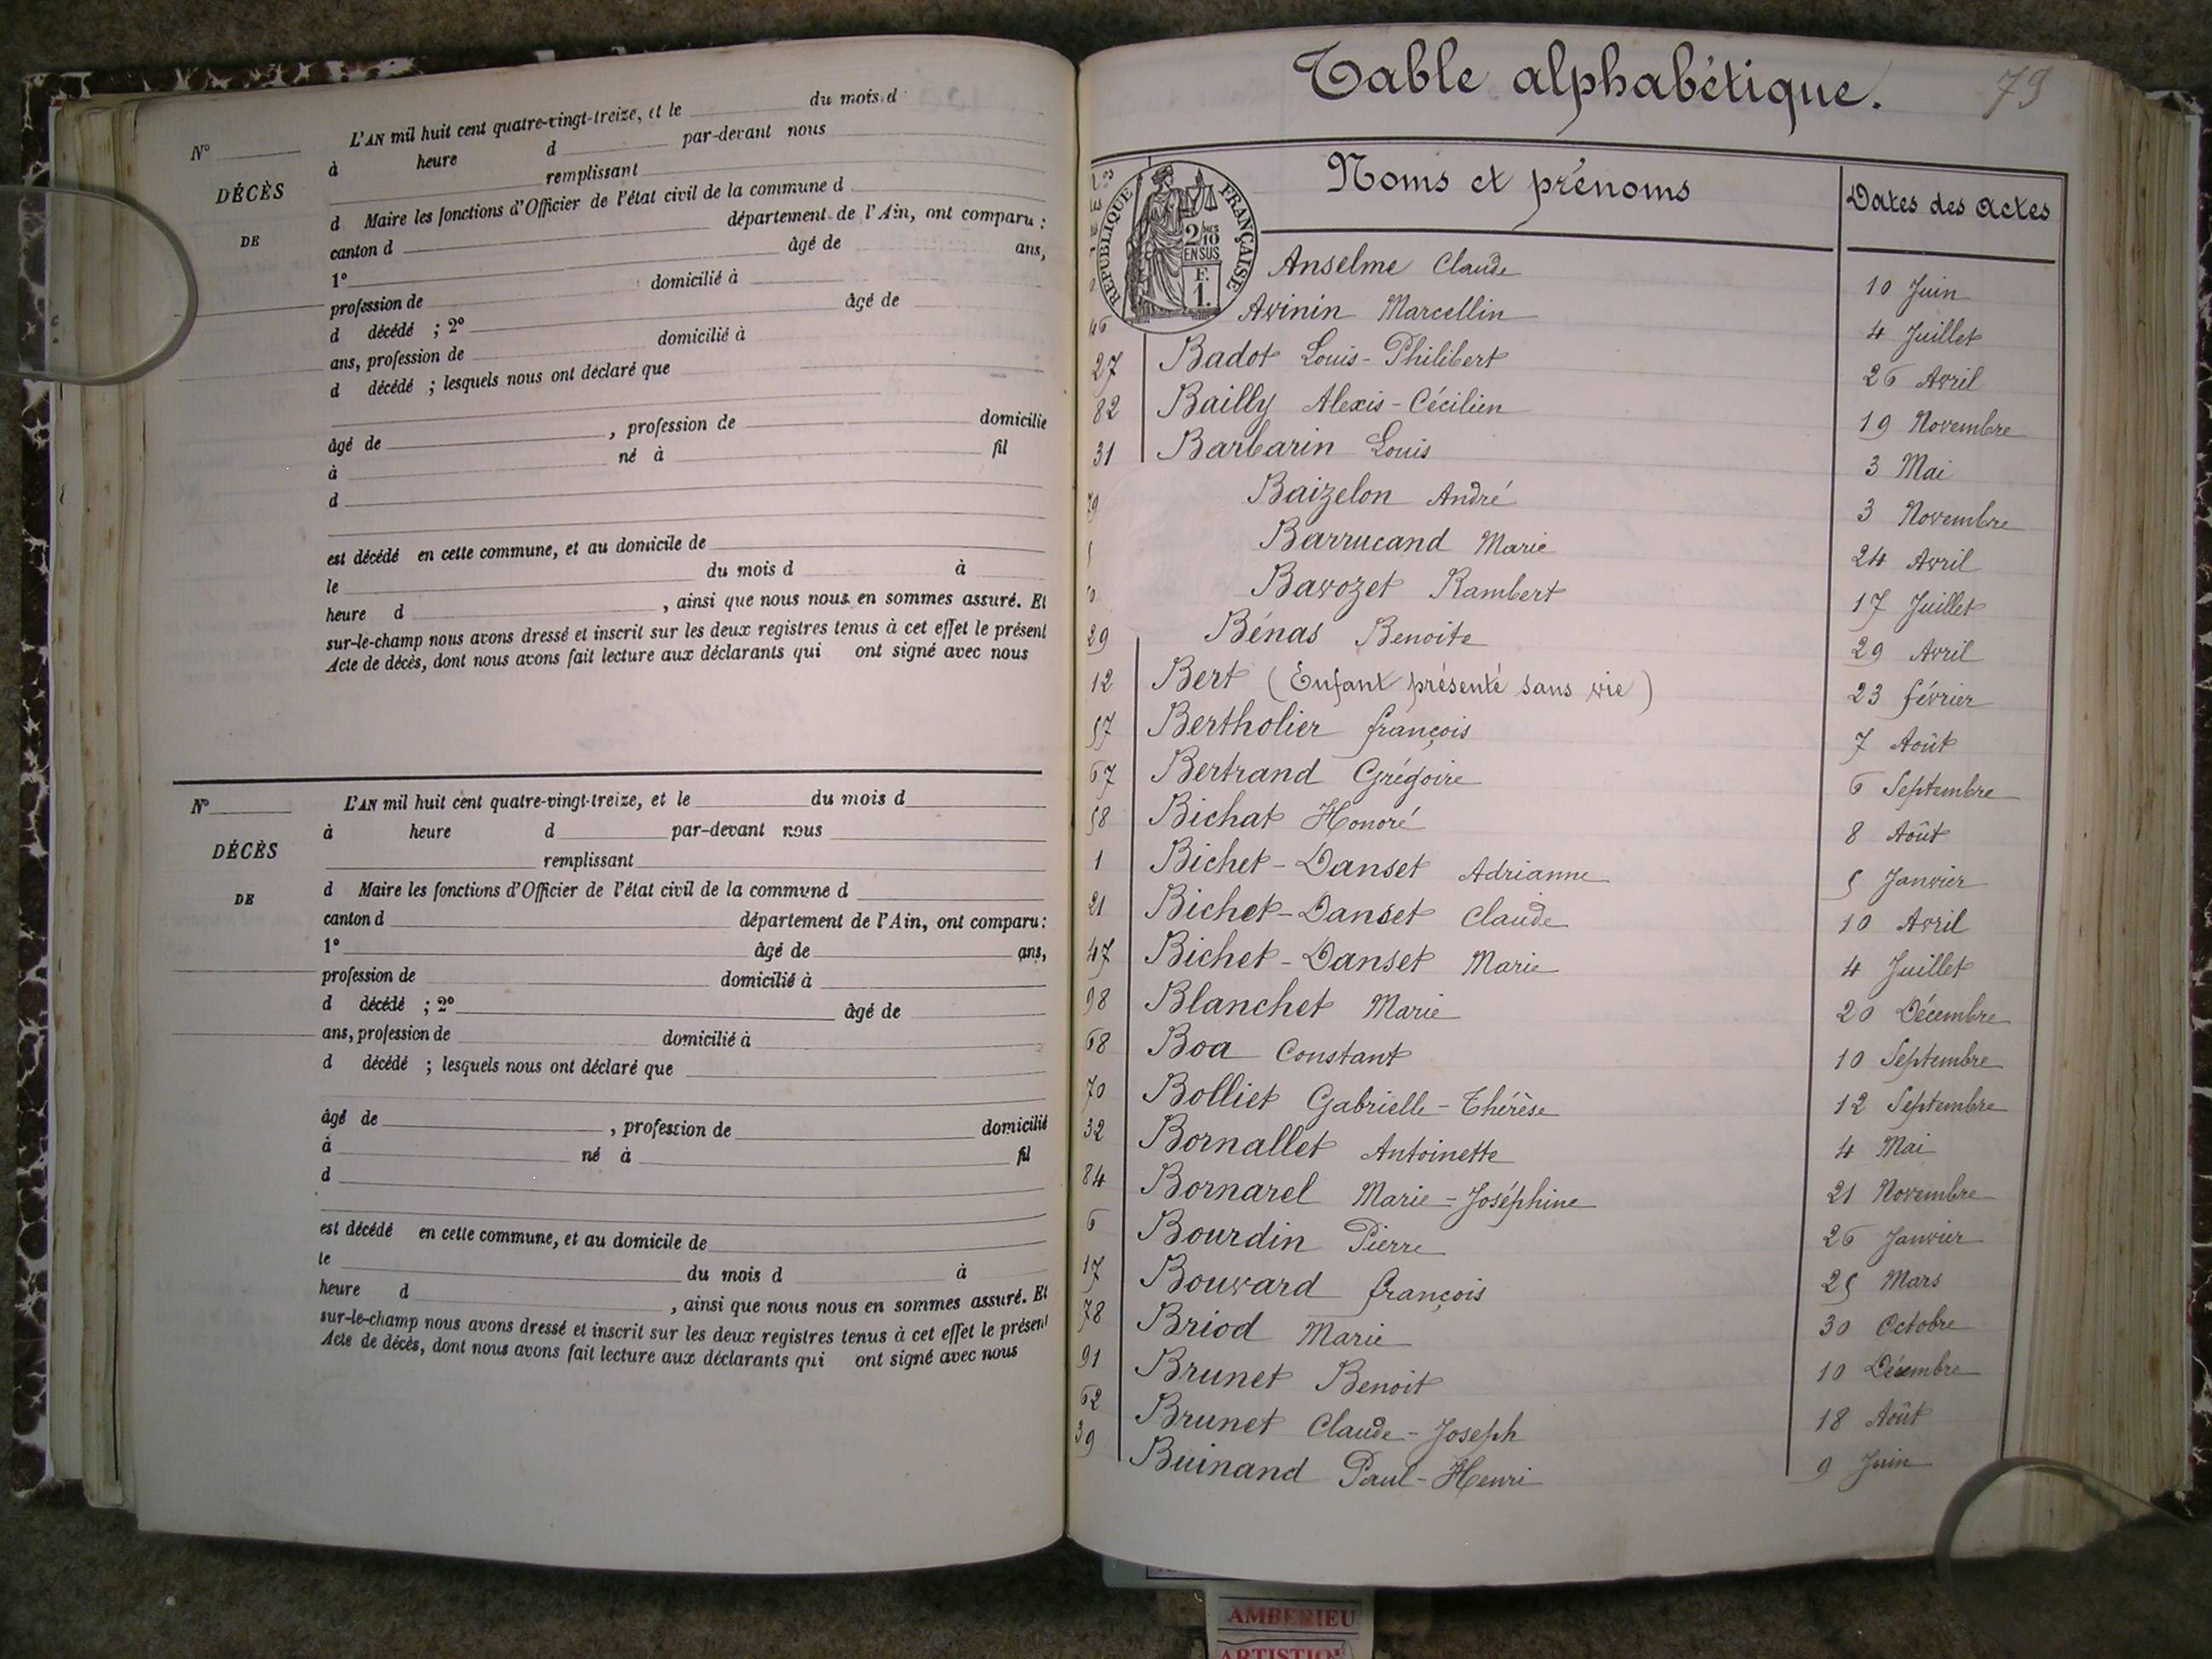 N°
DÉCÈS
DE
L'AN mil huit cent quatre-vingt-treize, et le du mois d
à heure d par-devant nous
remplissant
d Maire les fonctions d'Officier de l'état civil de la commune d
canton d département de l'Ain, ont comparu :
1° âgé de ans,
profession de domicilié à
d décédé ; 2° âgé de
ans, profession de domicilié à
d décédé ; lesquels nous ont déclaré que
âgé de , profession de domicilié
à né à fil
d
est décédé en cette commune, et au domicile de
le du mois d à
heure d , ainsi que nous nous en sommes assuré. Et
sur-le-champ nous avons dressé et inscrit sur les deux registres tenus à cet effet le présent
Acte de décès, dont nous avons fait lecture aux déclarants qui ont signé avec nous
N°
DÉCÈS
DE
L'AN mil huit cent quatre-vingt-treize, et le du mois d
à heure d par-devant nous
remplissant
d Maire les fonctions d'Officier de l'état civil de la commune d
canton d département de l'Ain, ont comparu :
1° âgé de ans,
profession de domicilié à
d décédé ; 2° âgé de
ans, profession de domicilié à
d décédé ; lesquels nous ont déclaré que
âgé de , profession de domicilié
à né à fil
d
est décédé en cette commune, et au domicile de
le du mois d à
heure d , ainsi que nous nous en sommes assuré. Et
sur-le-champ nous avons dressé et inscrit sur les deux registres tenus à cet effet le présent
Acte de décès, dont nous avons fait lecture aux déclarants qui ont signé avec nous
Table alphabétique.
79
Noms et prénoms Dates des actes
RÉPUBLIQUE FRANÇAISE
2/10
EN SUS
F.
1.
Anselme Claude 10 Juin
46 Avinin Marcellin 4 Juillet
27 Badot Louis-Philibert 26 Avril
82 Bailly Alexis-Cécilien 19 Novembre
31 Barbarin Louis 3 Mai
79 Baizelon André 3 Novembre
Barrucand Marie 24 Avril
Bavozet Rambert 17 Juillet
29 Bénas Benoite 29 Avril
12 Bert (Enfant présenté sans vie) 23 février
57 Bertholier françois 7 Août
67 Bertrand Grégoire 6 Septembre
58 Bichat Honoré 8 Août
1 Bichet-Danset Adrianne 5 Janvier
21 Bichet-Danset Claude 10 Avril
47 Bichet-Danset Marie 4 Juillet
98 Blanchet Marie 20 Décembre
68 Boa Constant 10 Septembre
70 Bolliet Gabrielle-Thérèse 12 Septembre
32 Bornallet Antoinette 4 Mai
84 Bornarel Marie-Joséphine 21 Novembre
6 Bourdin Pierre 26 Janvier
17 Bouvard françois 25 Mars
78 Briod Marie 30 Octobre
91 Brunet Benoit 10 Décembre
62 Brunet Claude-Joseph 18 Août
39 Buinand Paul-Henri 9 Juin
AMBERIEU
ARTISTIQ